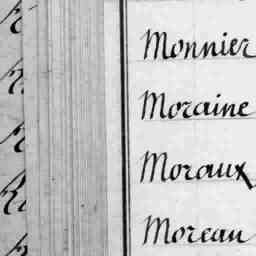 Monnier
Moraine
Moraux
Moreau